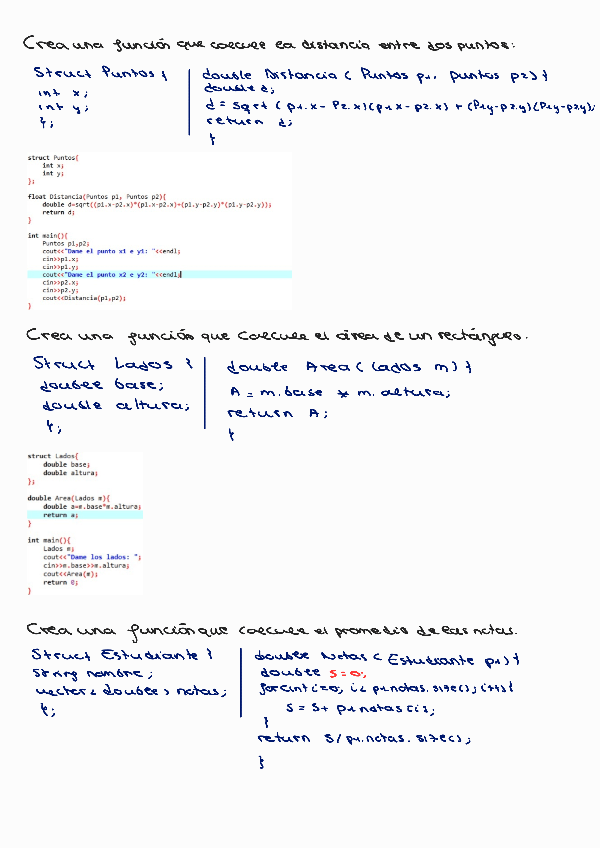 Crea una función que calcule la distancia entre dos puntos:
Struct Puntos {
int x;
int y;
};
double Distancia ( Puntos p1, puntos p2) {
double d;
d = sqrt ( p1.x - P2.x)(p1.x - p2.x) + (P1y-p2.y)(P1y-p2y);
return d;
}
struct Puntos{
int x;
int y;
};
float Distancia(Puntos p1, Puntos p2){
double d=sqrt((p1.x-p2.x)*(p1.x-p2.x)+(p1.y-p2.y)*(p1.y-p2.y));
return d;
}
int main(){
Puntos p1,p2;
cout<<"Dame el punto x1 e y1: "<<endl;
cin>>p1.x;
cin>>p1.y;
cout<<"Dame el punto x2 e y2: "<<endl;
cin>>p2.x;
cin>>p2.y;
cout<<Distancia(p1,p2);
}
Crea una función que calcule el área de un rectángulo.
Struct Lados {
double base;
double altura;
};
double Area ( Lados m) {
A = m.base * m.altura;
return A;
}
struct Lados{
double base;
double altura;
};
double Area(Lados m){
double a=m.base*m.altura;
return a;
}
int main(){
Lados m;
cout<<"Dame los lados: ";
cin>>m.base>>m.altura;
cout<<Area(m);
return 0;
}
Crea una función que calcule el promedio de las notas.
Struct Estudiante {
string nombre;
vector < double > notas;
};
double Notas ( Estudiante p1) {
double S=0;
for(int i=0; i < p1.notas.size(); i++){
S = S + p1.notas[i];
}
return S / p1.notas.size();
}